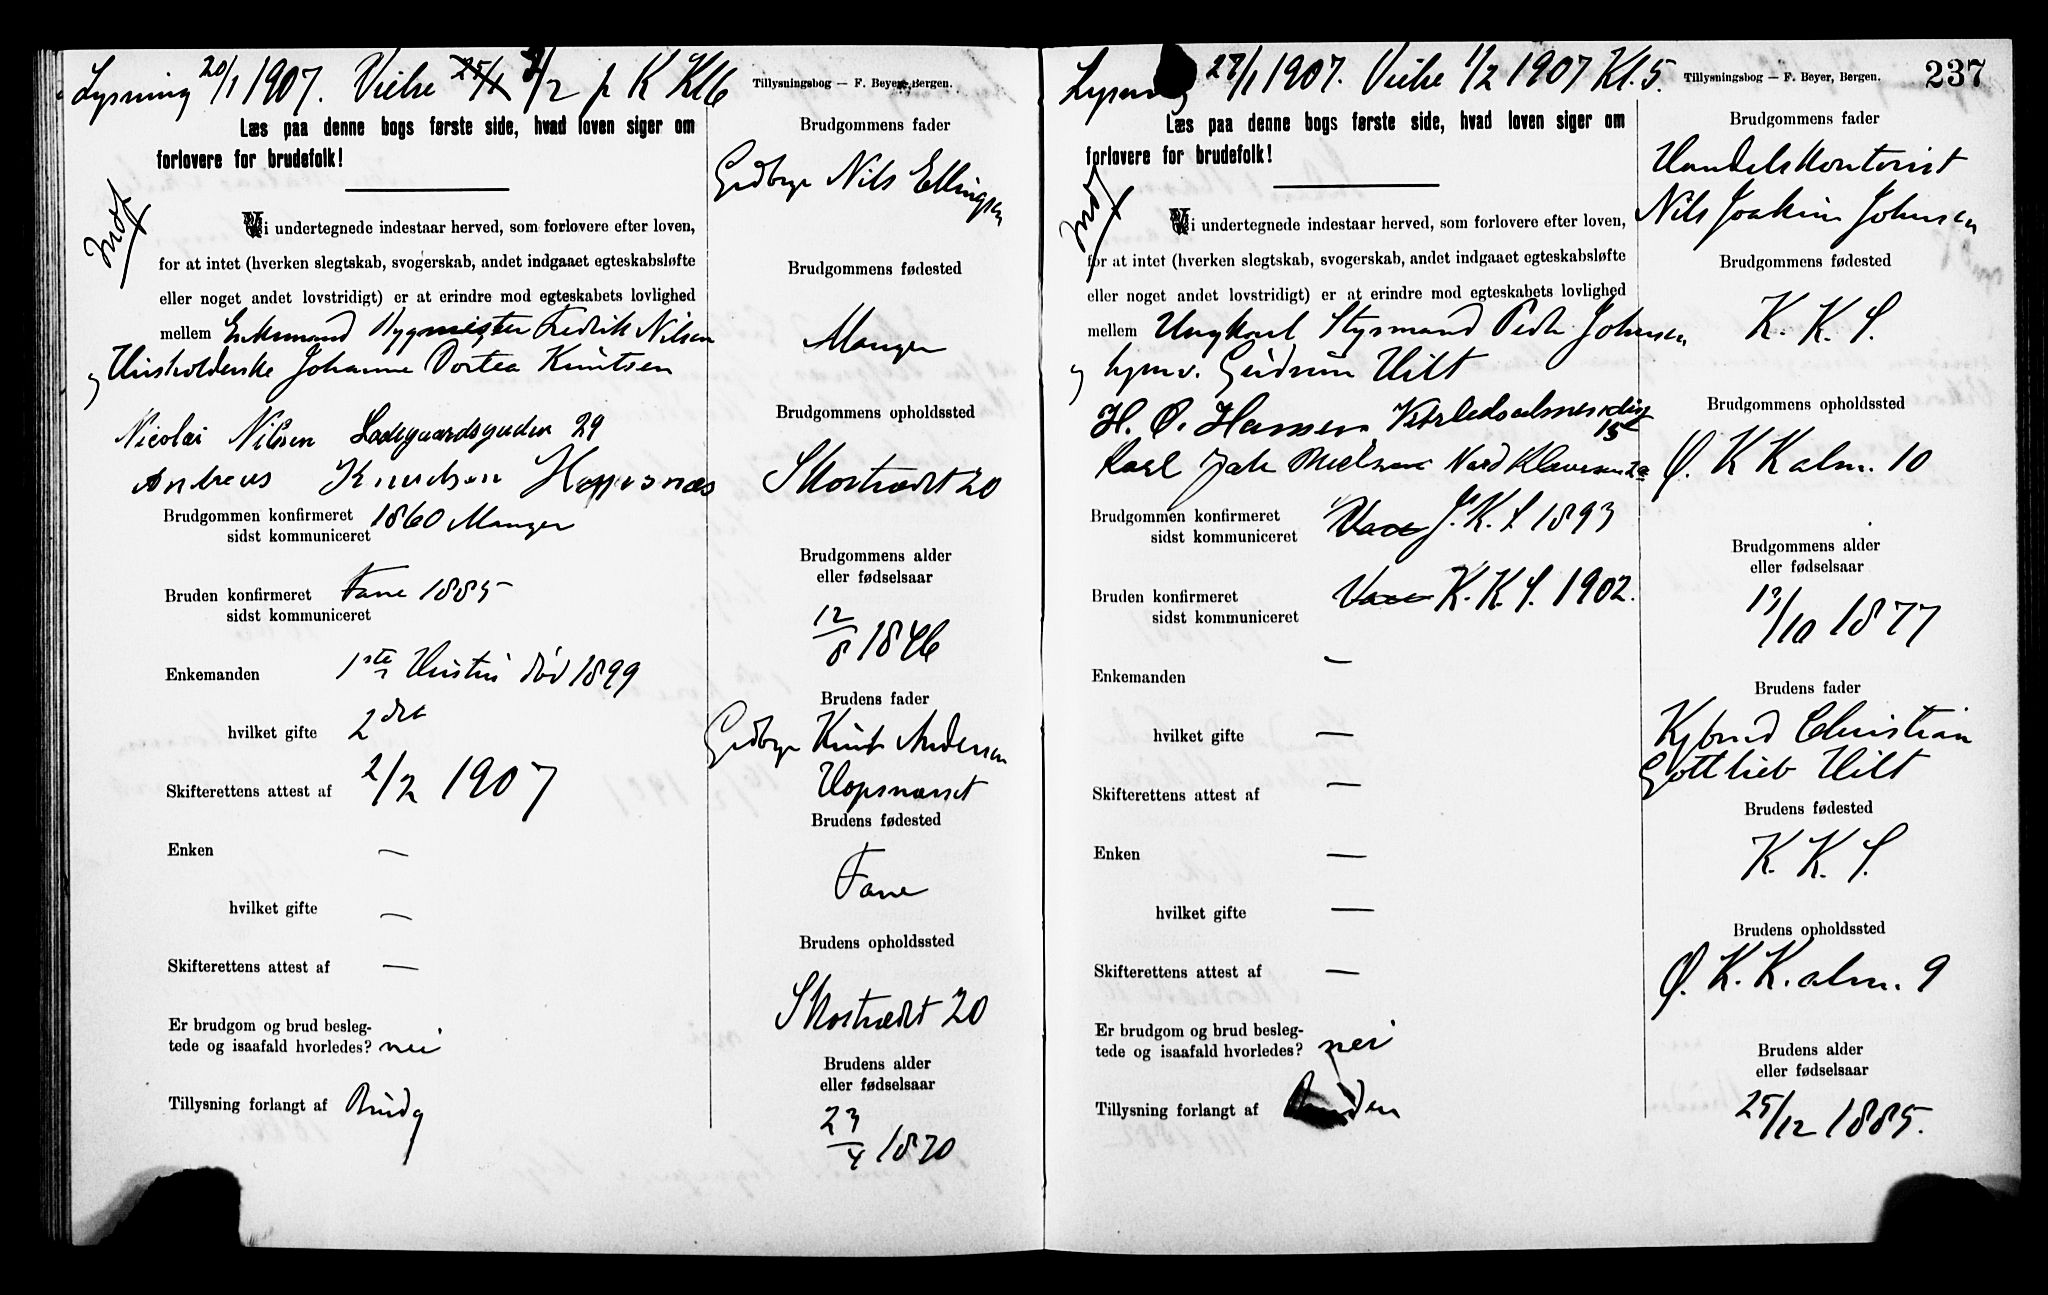 Lysning 20/1 1907. Vielse 25/1 3/2 p K Kl 6
Tillysningsbog — F. Beyer, Bergen.
Læs paa denne bogs første side, hvad loven siger om
forlovere for brudefolk!
Vi undertegnede indestaar herved, som forlovere efter loven,
for at intet (hverken slegtskab, svogerskab, andet indgaaet egteskabsløfte
eller noget andet lovstridigt) er at erindre mod egteskabets lovlighed
mellem Enkemand Bygmester Fredrik Nilsen
og Husholderske Johanne Dortea Knutsen
Nicolai Nilsen Ladegaardsgaden 29
Andreas Knudsen Hopsnæs
Brudgommen konfirmeret 1860 Manger
sidst kommuniceret
Bruden konfirmeret Fane 1885
sidst kommuniceret
Enkemanden 1ste Hustru død 1899
hvilket gifte 2det
Skifterettens attest af 2/2 1907
Enken —
hvilket gifte —
Skifterettens attest af —
Er brudgom og brud besleg-
tede og isaafald hvorledes? nei
Tillysning forlangt af Brudg
Brudgommens fader
Grdbrge Nils Ellingsen
Brudgommens fødested
Manger
Brudgommens opholdssted
Skostrædet 20
Brudgommens alder
eller fødselsaar
12/8 1846
Brudens fader
Grdbrge Knut Andersen
Hopsnæsset
Brudens fødested
Fane
Brudens opholdssted
Skostrædet 20
Brudens alder
eller fødselsaar
23/4 1870
Lysning 27/1 1907. Vielse 1/2 1907 Kl. 5.
Tillysningsbog — F. Beyer, Bergen.
237
Læs paa denne bogs første side, hvad loven siger om
forlovere for brudefolk!
Vi undertegnede indestaar herved, som forlovere efter loven,
for at intet (hverken slegtskab, svogerskab, andet indgaaet egteskabsløfte
eller noget andet lovstridigt) er at erindre mod egteskabets lovlighed
mellem Ungkarl Styrmand Peder Johnsen
og hjemv. Gudrun Hilt
H. O. Hansen 15
Karl Nielsen
Brudgommen konfirmeret J. K. S 1893
sidst kommuniceret
Bruden konfirmeret K. K. S. 1902.
sidst kommuniceret
Enkemanden —
hvilket gifte —
Skifterettens attest af —
Enken —
hvilket gifte —
Skifterettens attest af —
Er brudgom og brud besleg-
tede og isaafald hvorledes? nei
Tillysning forlangt af Bruden
Brudgommens fader
Handelskontorist
Nils Joakim Johnsen
Brudgommens fødested
K. K. S.
Brudgommens opholdssted
Ø. K Kalm. 10
Brudgommens alder
eller fødselsaar
13/10 1877
Brudens fader
Christian
Gottlieb Hilt
Brudens fødested
K. K. S.
Brudens opholdssted
Ø. K. K. alm. 9
Brudens alder
eller fødselsaar
25/12 1885.